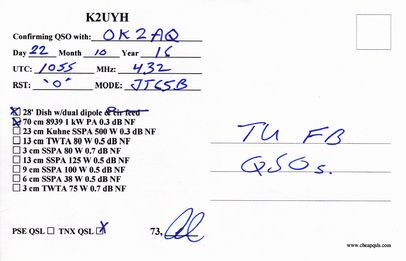 K2UYH
Confirming QSO with: OK2AQ
Day 22 Month 10 Year 16
UTC: 1055 MHz: 432
RST: "O" MODE: JT65B
28' Dish w/dual dipole & cir feed
70 cm 8939 1 kW PA 0.3 dB NF
23 cm Kuhne SSPA 500 W 0.3 dB NF
13 cm TWTA 80 W 0.5 dB NF
3 cm SSPA 80 W 0.7 dB NF
13 cm SSPA 125 W 0.5 dB NF
9 cm SSPA 100 W 0.5 dB NF
6 cm SSPA 38 W 0.5 dB NF
3 cm TWTA 75 W 0.7 dB NF
TU FB
QSOs.
PSE QSL TNX QSL X 73,
www.cheapqsls.com